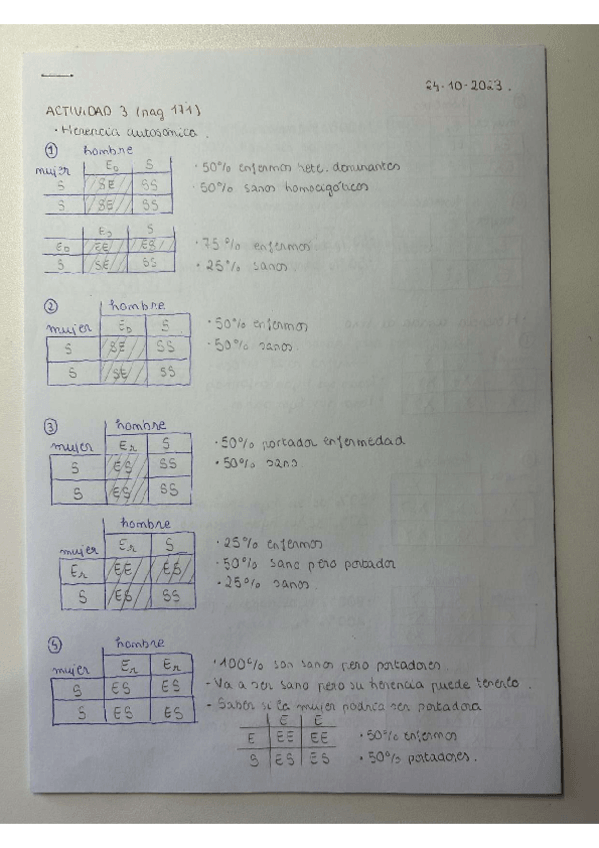 24-10-2023.
ACTIVIDAD 3 (pag 171)
· Herencia autosómica.
① hombre
mujer E_D S
S SE SS
S SE SS
· 50% enfermos hete. dominantes
· 50% sanos homocigóticos
E_D S
E_D EE ES
S SE SS
· 75% enfermos
· 25% sanos
② hombre
mujer E_D S
S SE SS
S SE SS
· 50% enfermos
· 50% sanos
③ hombre
mujer Er S
S ES SS
S ES SS
· 50% portador enfermedad
· 50% sano
hombre
mujer Er S
Er EE ES
S ES SS
· 25% enfermos
· 50% sano pero portador
· 25% sanos.
hombre
mujer Er Er
S ES ES
S ES ES
· 100% son sanos pero portadores
- Va a ser sano pero su herencia puede tenerlo.
- Saber si la mujer podría ser portadora
E E
E EE EE
S ES ES
· 50% enfermos
· 50% portadores.